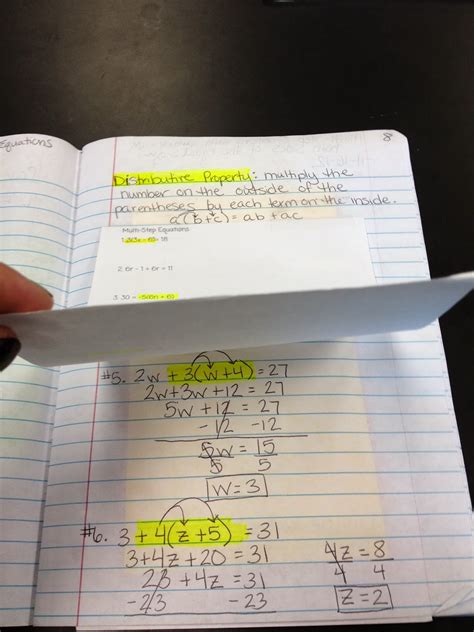 Equations
8
Distributive Property: multiply the
number on the outside of the
parentheses by each term on the inside.
a(b+c) = ab + ac
Multi-Step Equations
2. 6r - 1 + 6r = 11
#5. 2w + 3(w+4) = 27
2w+3w+12 = 27
5w + 12 = 27
-12 -12
5w = 15
5 5
w = 3
#6. 3 + 4(z+5) = 31
3+4z+20 = 31
23 + 4z = 31
-23 -23
4z = 8
4 4
z = 2